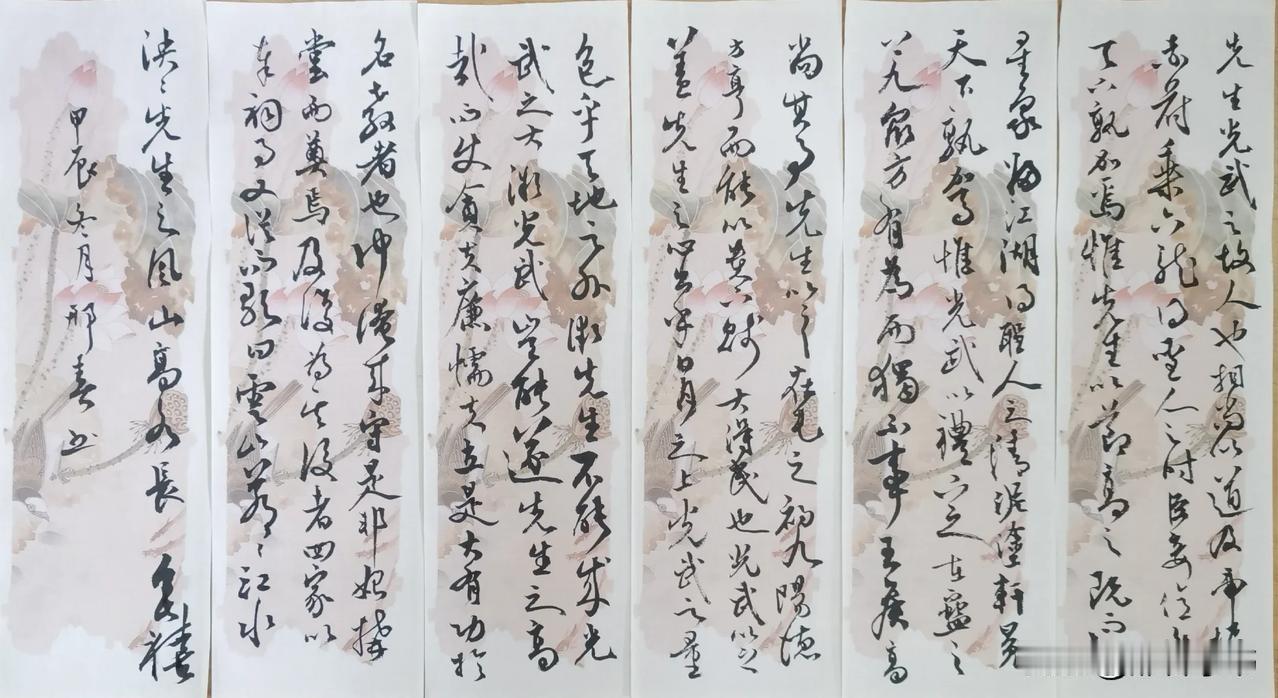 先生光武之故人也相尚以道及帝握
赤符乘六龍得聖人之時臣妾億兆
天下孰加焉惟先生以節高之既而
星象歸江湖得聖人之清泥塗軒冕
天下孰加焉惟光武以禮下之在蠱之
上九眾方有為而獨不事王侯高
尚其事先生以之在屯之初九陽德
方亨而能以貴下賤大得民也光武以之
蓋先生之心出乎日月之上光武之量
包乎天地之外微先生不能成光
武之大微光武豈能遂先生之高
哉而使貪夫廉懦夫立是大有功於
名教者也仲淹來守是邦始構
堂而奠焉及復為其後者四家以
奉祠事又從而歌曰雲山蒼〻江水
泱〻先生之風山高水長
甲辰冬月邢春书